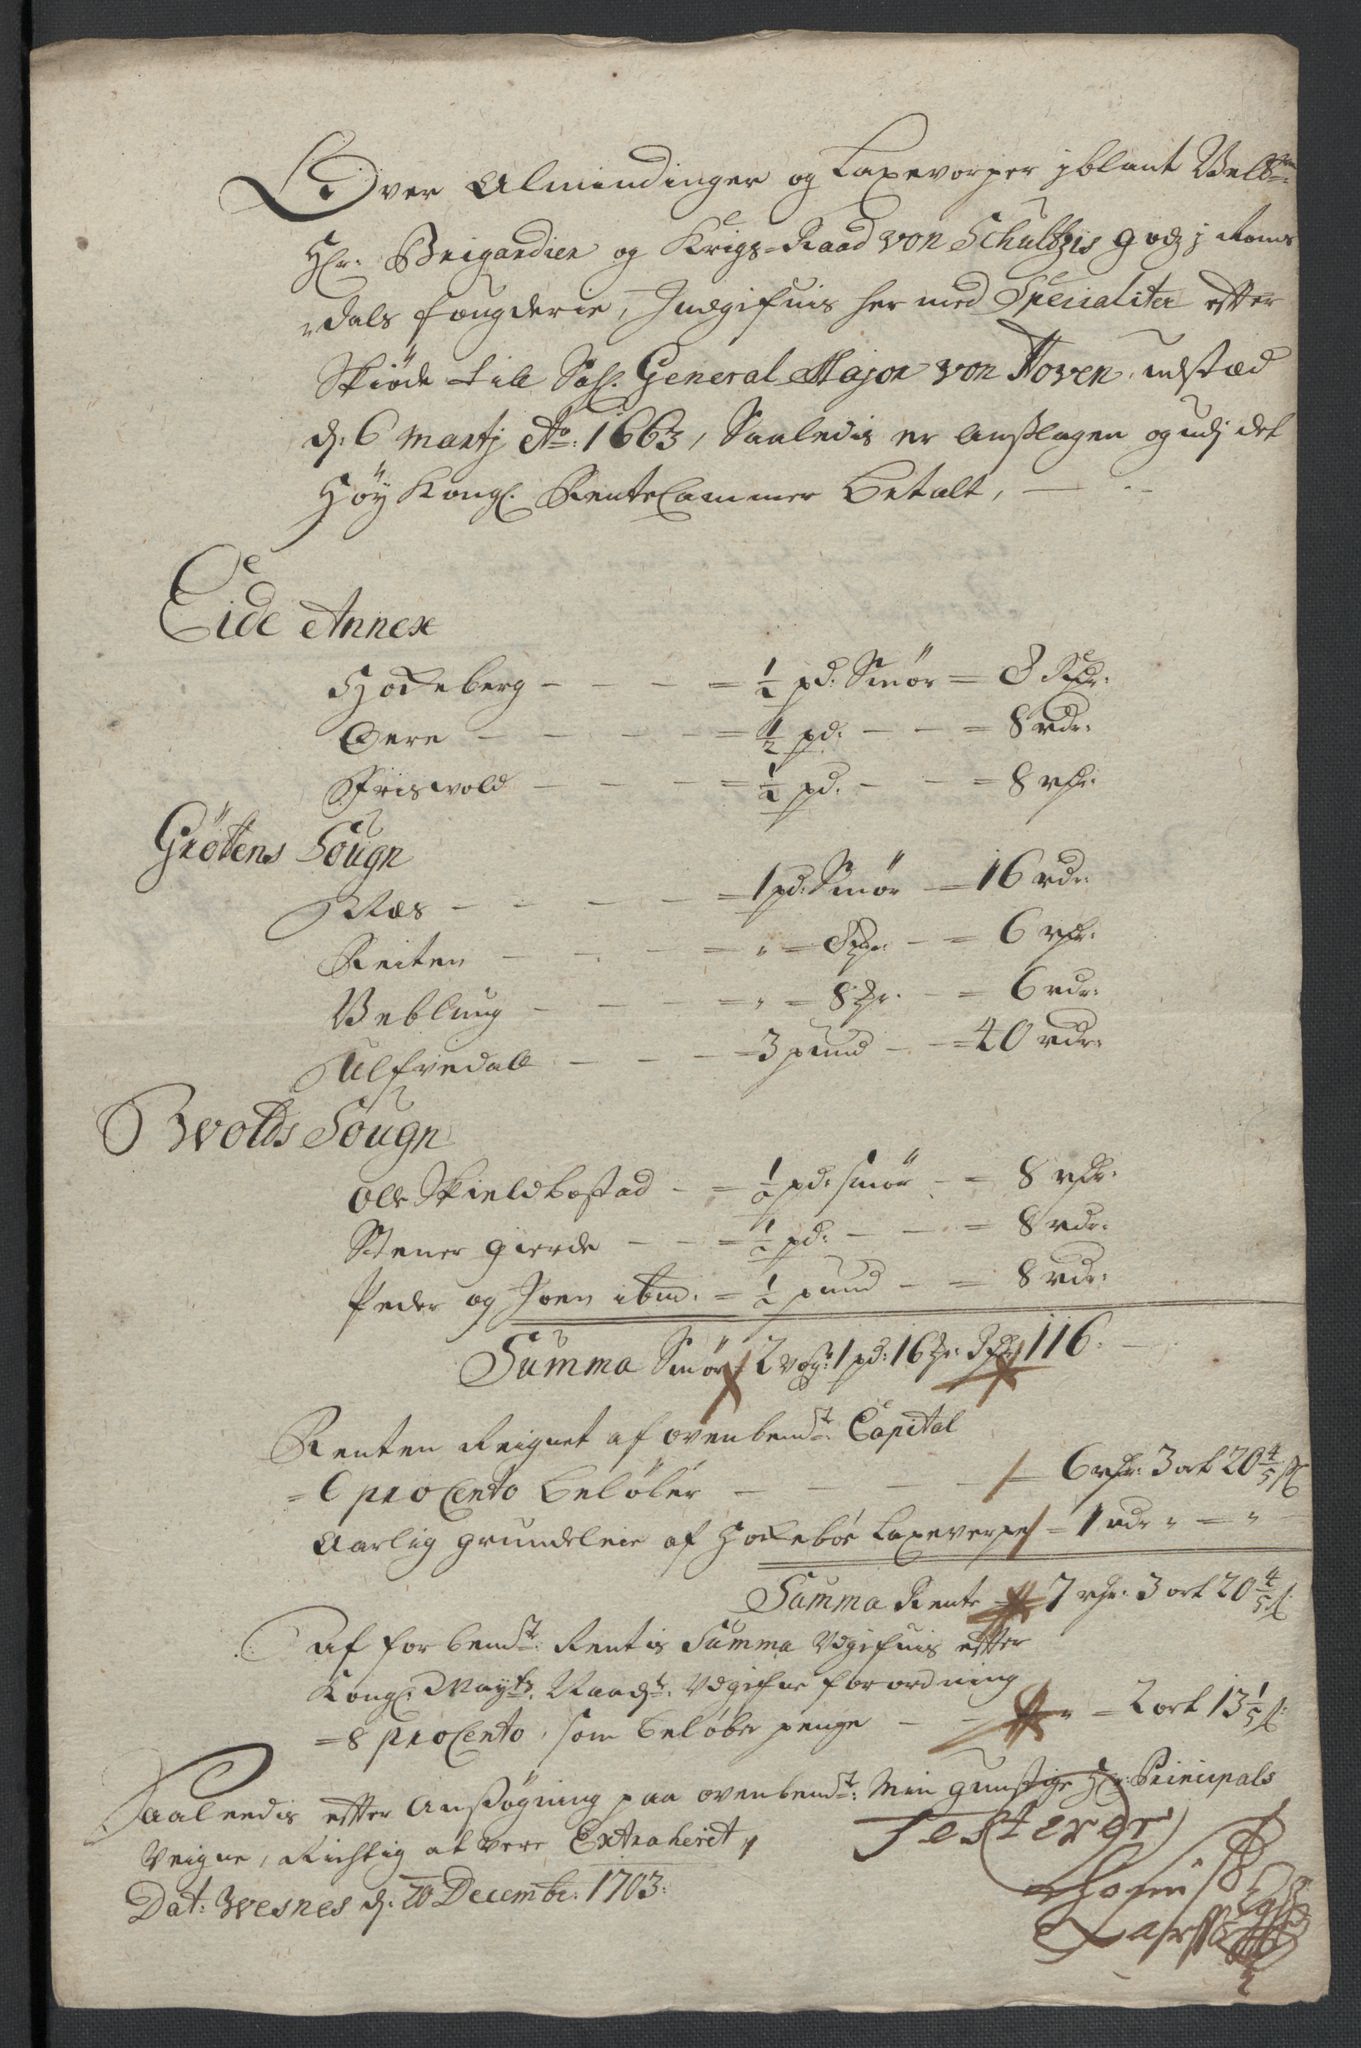 Over Almindinger og Laxevorper jblant Welb:
Hr: Brigandier og Krigs=Raad von Schultzis godz j Roms
dals fougderie, Indgifuis her med Specialiter efter
Skiøde till Sahl. General Major von Hoven udstæd
d: 6 Martj Ao: 1663, Saaledis er Anslagen og udj det
Høy Kongl. RenteCammer betalt, —
Eide Annex
Hodeberg — — — = ½ pd: Smør = 8 Rdr:
Øere — — — — = ½ pd: — — = 8 rdr:
Friswold — — — = ½ pd. — — = 8 rdr:
Grøtens Sougn
Næs — — — — = 1 pd: Smør — = 16 rdr:
Reiten — — — — = " = 8 — = 6 rdr:
Veblung — — — = " = 8 — = 6 rdr:
Ulfvedall — — — = 3 pund — = 40 rdr:
Wolds Sougn
Ole Skieldbostad — = ½ pd: smør — = 8 rdr:
Stener gierde — — = ½ pd: — — = 8 rdr:
Peder og Joen ibm: = ½ pund — = 8 rdr:
Summa Smør 2 1 pd: 16 116:
Renten Reignet af ovenbemt: Capital
= 6 proCento beløber — — — — = 6 rdr: 3 ort 20 4/5 s
Aarlig grundleie af Laxeverpe = 1 rdr " = "
Summa Rente = 7 rdr: 3 ort 20 4/5 s
Af forbemt: Rentis Summa Udgifuis efter
Kongl: Mayts: Naadst: Udgifne forordning
= 8 proCento, som beløber penge — — " = 2 ort 13 1/5 s:
Saaleedis efter Ansøgning paa ovenbemt: Min gunstige Hr: Principals
Veigne, Richtig at vere Extraheret,
Testerer
Dat: Wesnes d: 20 Decembr: 1703: